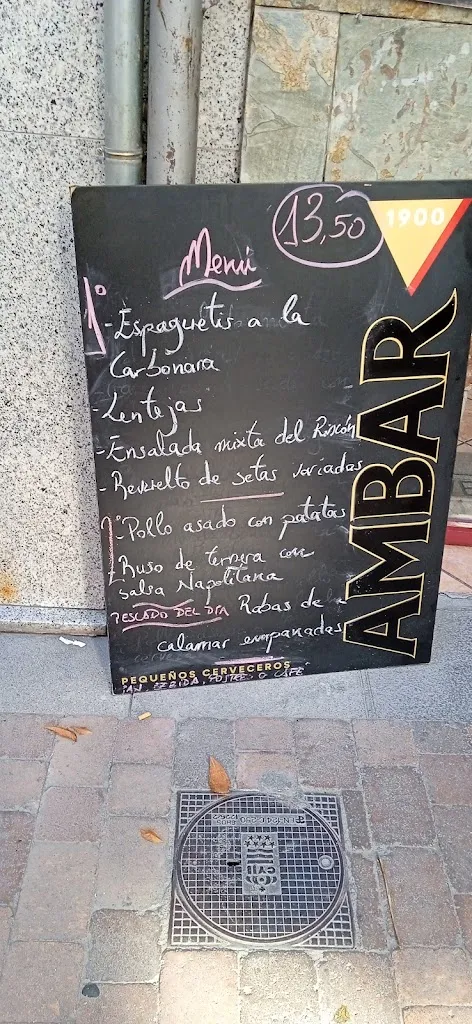 13,50
1900
Menú
1º
-Espaguetis a la
Carbonara
-Lentejas
-Ensalada mixta del Rincón
-Revuelto de setas variadas
2º
-Pollo asado con patatas
-Ruso de Ternera con
salsa Napolitana
PESCADO DEL DIA Rabas de
calamar empanadas
AMBAR
PEQUEÑOS CERVECEROS
PAN, BEBIDA, POSTRE O CAFÉ
CYII